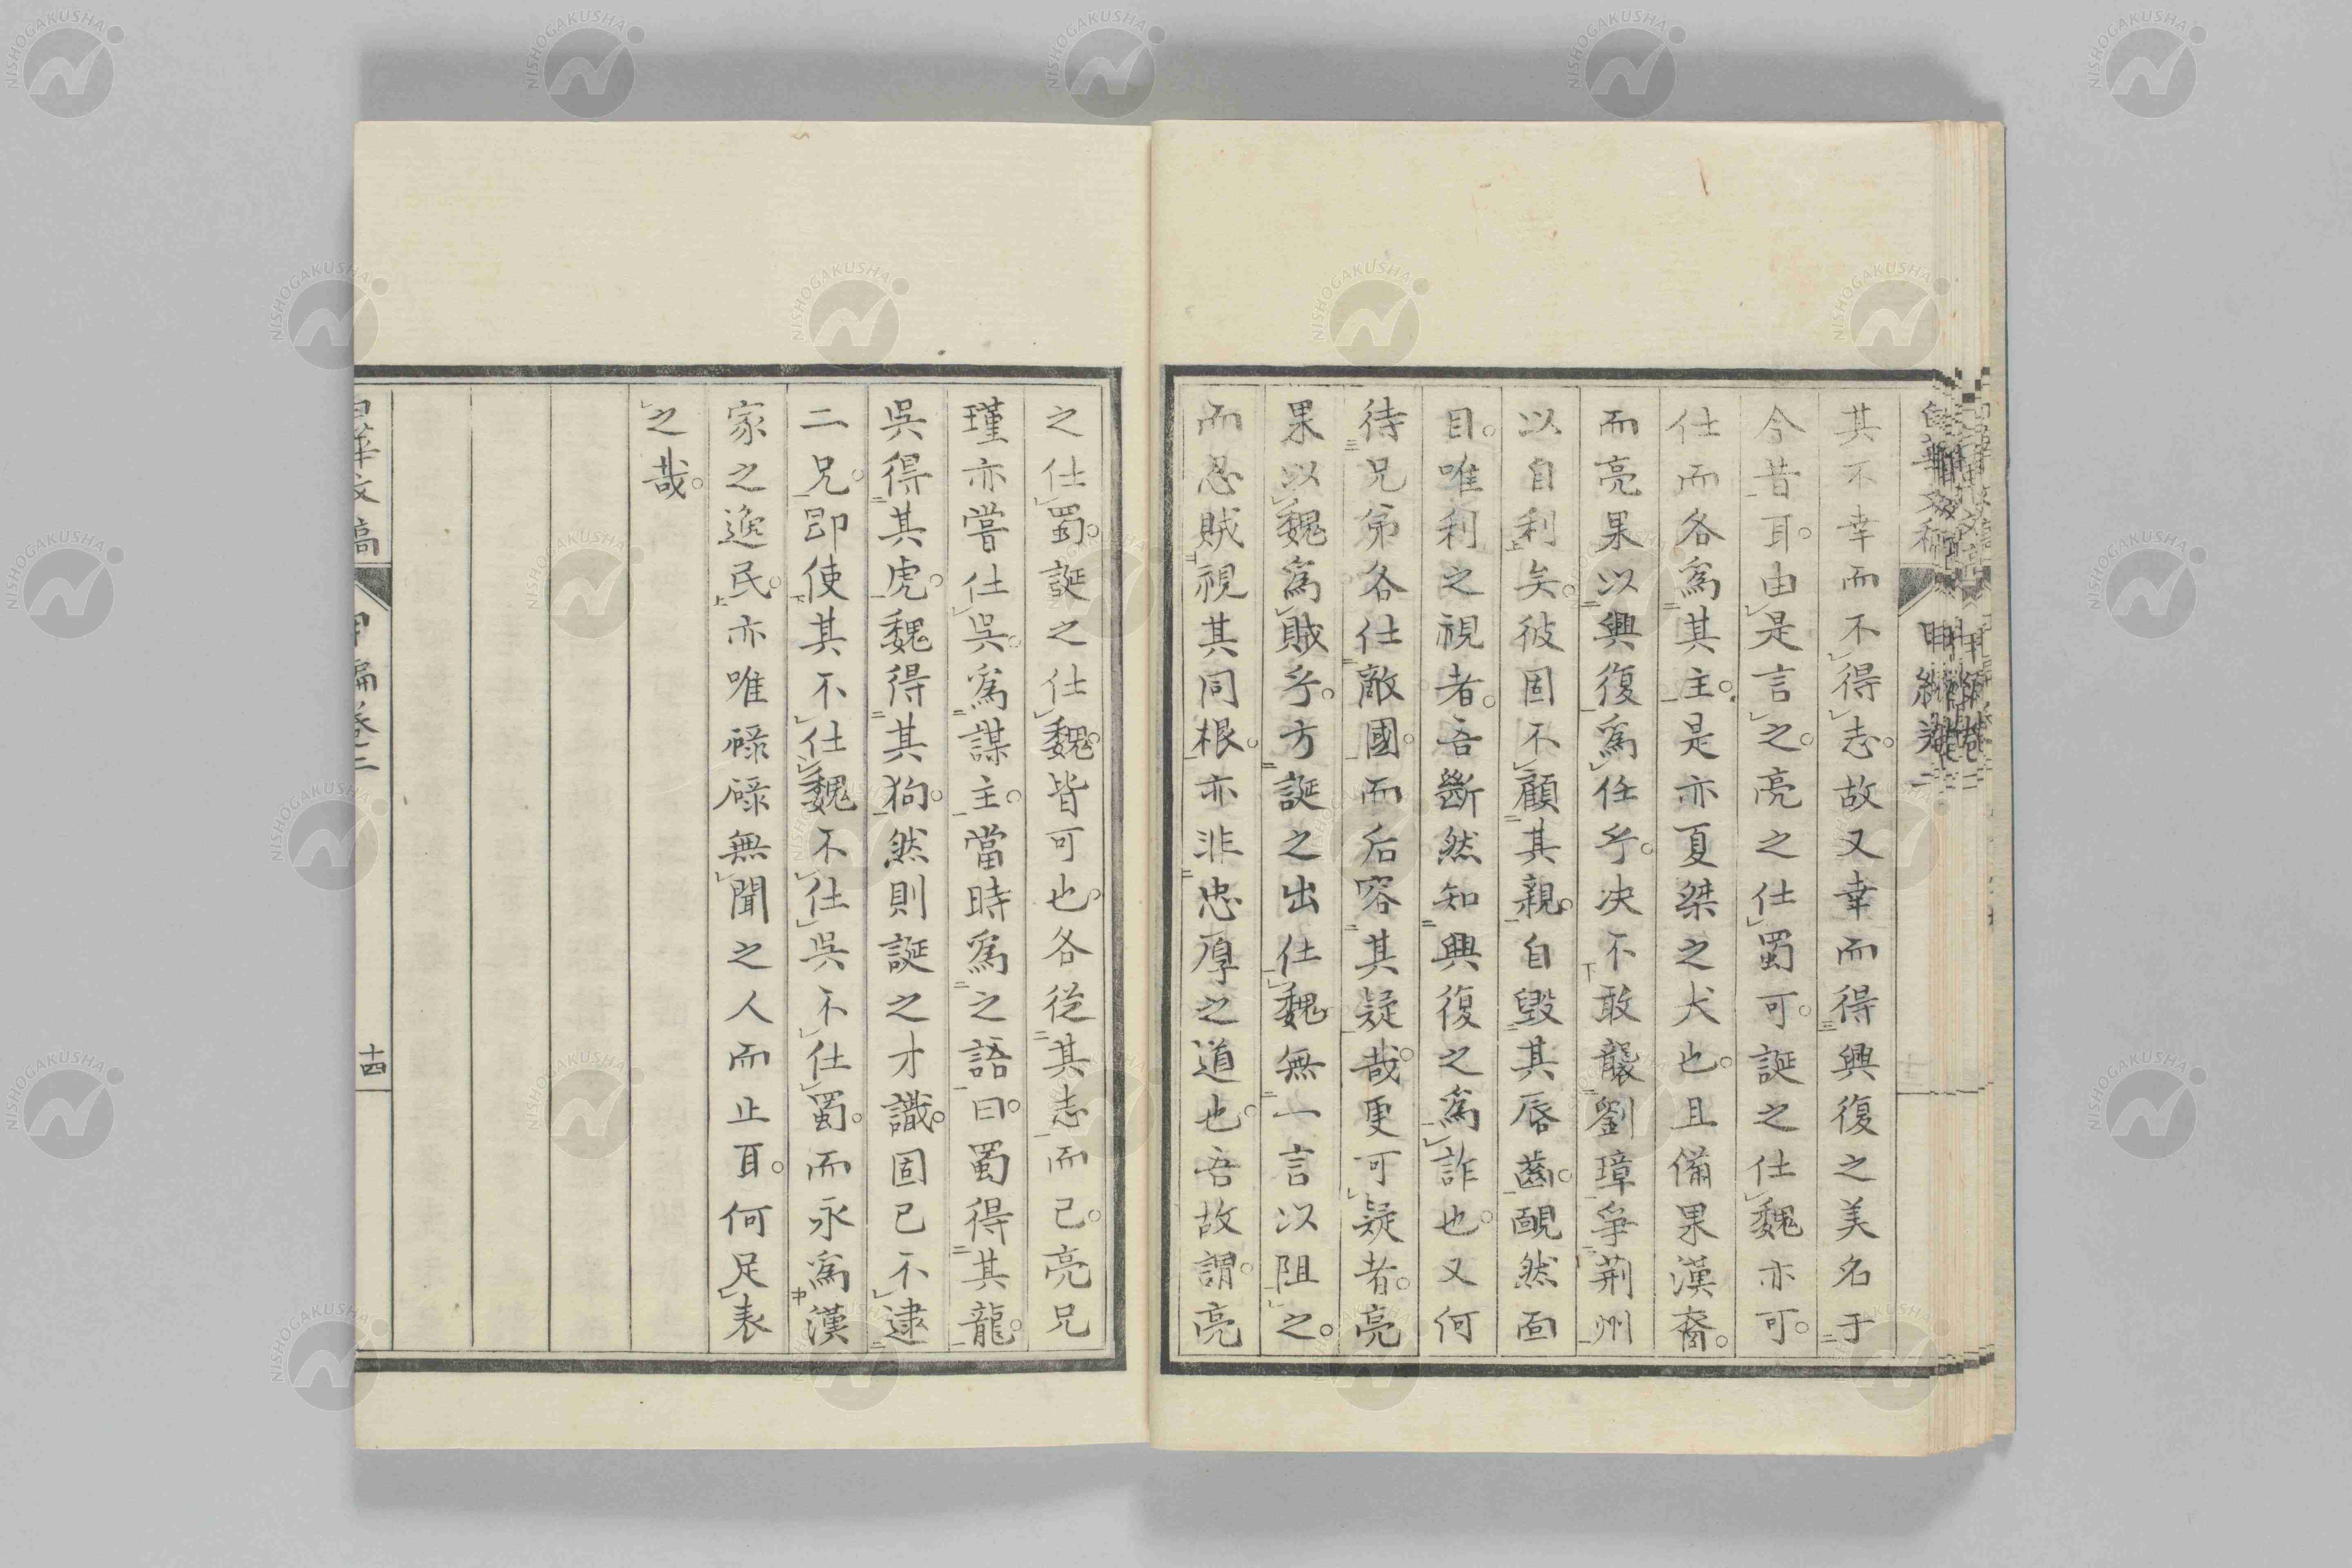 其不幸而不得志。故又幸而得興復之美名于
今昔耳。由是言之。亮之仕蜀可。誕之仕魏亦可。
仕而各爲其主。是亦夏桀之犬也。且備果漢裔。
而亮果以興復爲任乎。决不敢襲劉璋爭荊州
以自利矣。彼固不顧其親。自毀其唇齒。靦然面
目。唯利之視者。吾斷然知興復之爲詐也。又何
待兄弟各仕敵國。而后容其疑哉。更可疑者。亮
果以魏爲賊乎。方誕之出仕魏無一言以阻之。
而忍賊視其同根。亦非忠厚之道也。吾故謂。亮
之仕蜀。誕之仕魏。皆可也。各從其志而已。亮兄
瑾亦嘗仕吳。爲謀主。當時爲之語曰。蜀得其龍。
吳得其虎。魏得其狗。然則誕之才識。固已不逮
二兄。卽使其不仕魏不仕吳不仕蜀。而永爲漢
家之逸民。亦唯碌碌無聞之人而止耳。何足表
之哉。
甲編卷二
十四
NISHOGAKUSHA